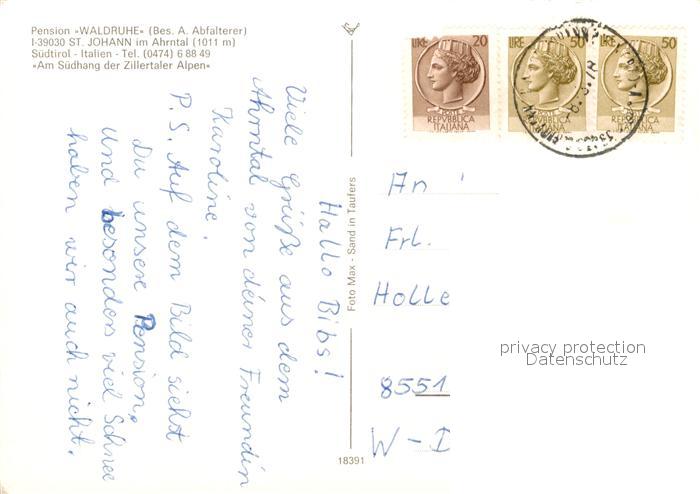 Pension »WALDRUHE« (Bes. A. Abfalterer)
I-39030 ST. JOHANN im Ahrntal (1011 m)
Südtirol - Italien - Tel. (0474) 6 88 49
»Am Südhang der Zillertaler Alpen«
Hallo Bibs!
Viele Grüße aus dem
Ahrntal von deiner Freundin
Karoline.
P.S. Auf dem Bild siehst
Du unsere Pension,
und besonders viel Schnee
haben wir auch nicht.
Foto Max - Sand in Taufers
18391
LIRE 20
REPVBBLICA
ITALIANA
LIRE 50
REPVBBLICA
ITALIANA
LIRE 50
REPVBBLICA
ITALIANA
An
Frl.
Holle
8551
W-D
privacy protection
Datenschutz